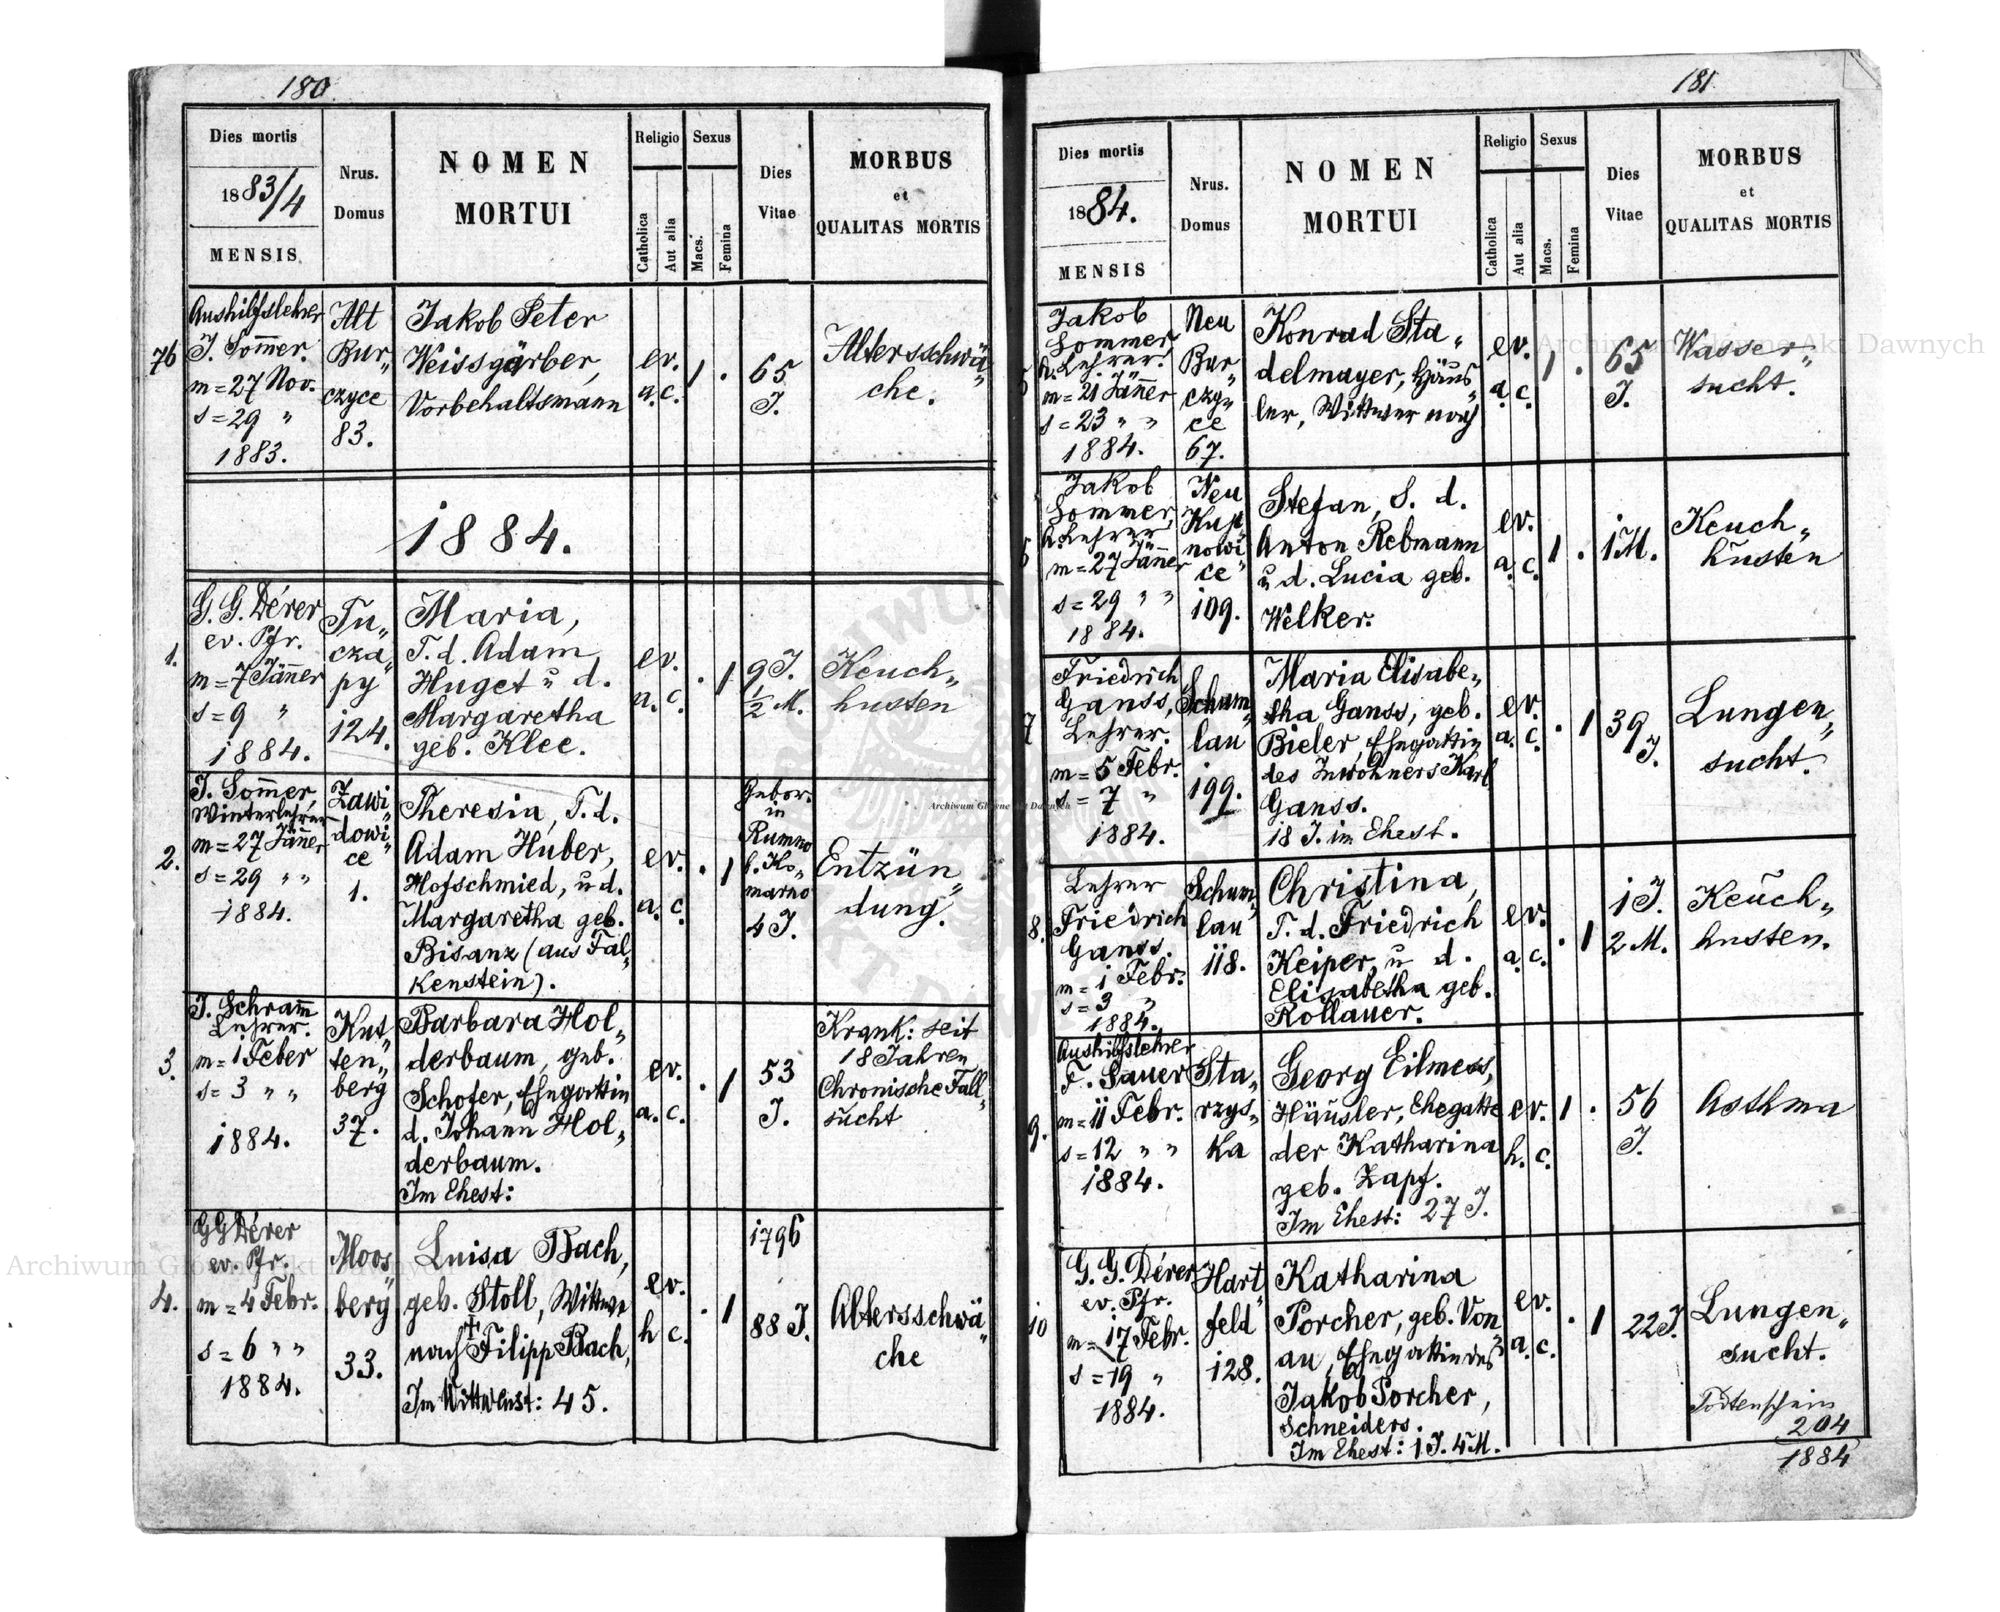 180
Dies mortis
1883/4
MENSIS
Nrus.
Domus
NOMEN
MORTUI
Religio
Catholica
Aut alia
Sexus
Macs.
Femina
Dies
Vitae
MORBUS
et
QUALITAS MORTIS
76
Aushilfslehrer
J. Sommer.
m = 27 Nov.
s = 29 "
1883.
Alt
Bur„
czyce
83.
Jakob Peter
Weissgärber,
Vorbehaltsmann
ev.
a. c.
1 .
65
J.
Altersschwä„
che.
1884.
1.
G. G. Dérer
ev. Pfr.
m = 7 Jänner
s = 9 "
1884.
Tu„
cza„
py
124.
Maria,
T. d. Adam
Huget u d.
Margaretha
geb. Klee.
ev.
a. c.
. 1
9 J.
1/2 M.
Keuch„
husten
2.
J. Sommer,
Winterlehrer
m = 27 Jänner
s = 29 " "
1884.
Zawi„
dowi„
ce
1.
Theresia, T. d.
Adam Huber,
Hofschmied, u d.
Margaretha geb.
Bisanz (aus Fal„
kenstein).
ev.
a. c.
. 1
Gebor.
in
Rumno
b. Ko„
marno
4 J.
Entzün„
dung.
3.
J. Schramm
Lehrer.
m = 1 Feber
s = 3 " "
1884.
Kut„
ten„
berg
37.
Barbara Hol„
derbaum, geb.
Schofer, Ehegattin
d. Johann Hol„
derbaum.
Im Ehest:
ev.
a. c.
. 1
53
J.
Krank: seit
18 Jahren,
Chronische Fall„
sucht
4.
G G Dérer
ev. Pfr.
m = 4 Febr.
s = 6 " "
1884.
Moos„
berg
33.
Luisa Bach,
geb. Stoll, Wittwe
nach † Filipp Bach,
Im Wittwenst: 45.
ev.
h c.
. 1
1796
88 J.
Altersschwä„
che
181
Dies mortis
1884.
MENSIS
Nrus.
Domus
NOMEN
MORTUI
Religio
Catholica
Aut alia
Sexus
Macs.
Femina
Dies
Vitae
MORBUS
et
QUALITAS MORTIS
5
Jakob
Sommer,
A. Lehrer.
m = 21 Jänner
s = 23 " "
1884.
Neu
Bur„
czy„
ce
67.
Konrad Sta„
delmayer, Häus„
ler, Wittwer nach
ev.
a. c.
1 .
65
J.
Wasser„
sucht.
6
Jakob
Sommer,
A. Lehrer
m = 27 Jänner
s = 29 " "
1884.
Neu
Kup„
nowi„
ce
109.
Stefan, S. d.
Anton Rebmann
u d. Lucia geb.
Welker.
ev.
a. c.
1 .
1 M.
Keuch„
husten
7
Friedrich
Ganss,
Lehrer.
m = 5 Febr.
s = 7 "
1884.
Schum„
lau
199.
Maria Elisabe„
tha Ganss, geb.
Bieler Ehegattin
des Inwohners Karl
Ganss.
18 J. im Ehest.
ev.
a. c.
. 1
39
J.
Lungen„
sucht.
8.
Lehrer
Friedrich
Ganss.
m = 1 Febr.
s = 3 "
1884.
Schum„
lau
118.
Christina,
T. d. Friedrich
Keiper, u d.
Elisabetha geb.
Kollauer.
ev.
a. c.
. 1
1 J.
2 M.
Keuch„
husten.
9.
Aushilfslehrer
F. Sauer
m = 11 Febr.
s = 12 " "
1884.
Sta„
rzys„
ka
Georg Eilmess,
Häusler, Ehegatte
der Katharina
geb. Zapf.
Im Ehest: 27 J.
ev.
h. c.
1 .
56
J.
Asthma
10
G. G. Dérer
ev. Pfr.
m = 17 Febr.
s = 19 "
1884.
Hart„
feld
128.
Katharina
Porcher, geb. Von„
au, Ehegattin des
Jakob Porcher,
Schneiders.
Im Ehest: 1 J. 4 M.
ev.
a. c.
. 1
22 J.
Lungen„
sucht.
Todtenschein
204
1884
Archiwum Główne Akt Dawnych
Archiwum Główne Akt Dawnych
Archiwum Główne Akt Dawnych